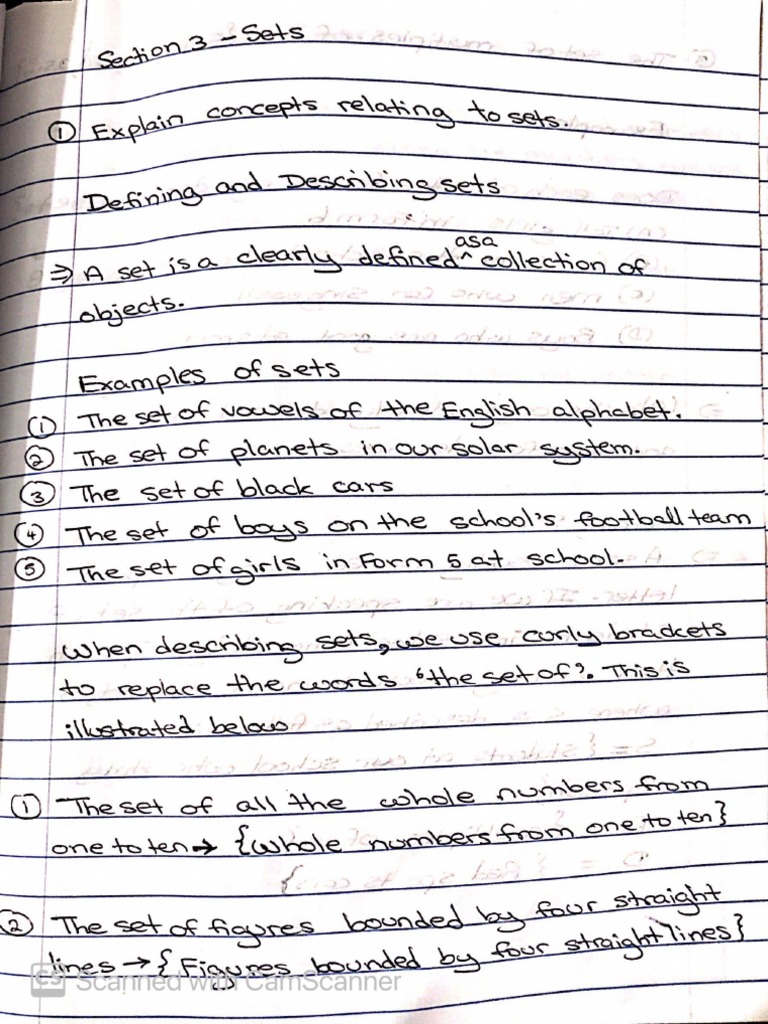 Section 3 - Sets
① Explain concepts relating to sets.
Defining and Describing sets
⇒ A set is a clearly defined ^ as a collection of
objects.
Examples of sets
① The set of vowels of the English alphabet.
② The set of planets in our solar system.
③ The set of black cars
④ The set of boys on the school's football team
⑤ The set of girls in Form 5 at school.
When describing sets, we use curly brackets
to replace the words 'the set of'. This is
illustrated below
① The set of all the whole numbers from
one to ten → {whole numbers from one to ten}
② The set of figures bounded by four straight
lines → {Figures bounded by four straight lines}
CS Scanned with CamScanner